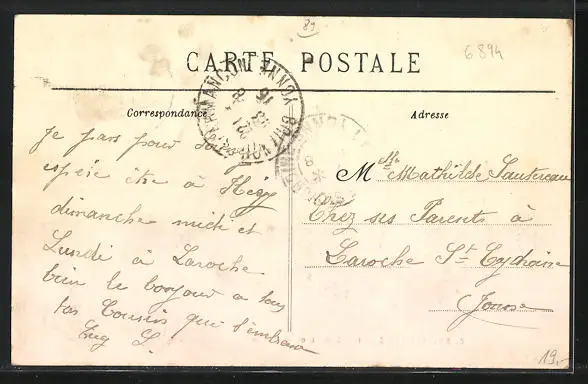 89
6 894
CARTE POSTALE
Correspondance
Adresse
Je pars pour
espère être à Hégy
dimanche midi et
Lundi à Laroche
bien le bonjour a tous
ton Cousin qui t'embrasse
Eug S.
Mlle Mathilde Sautereau
Chez ses Parents à
Laroche St Cydroine
Yonne
19.-